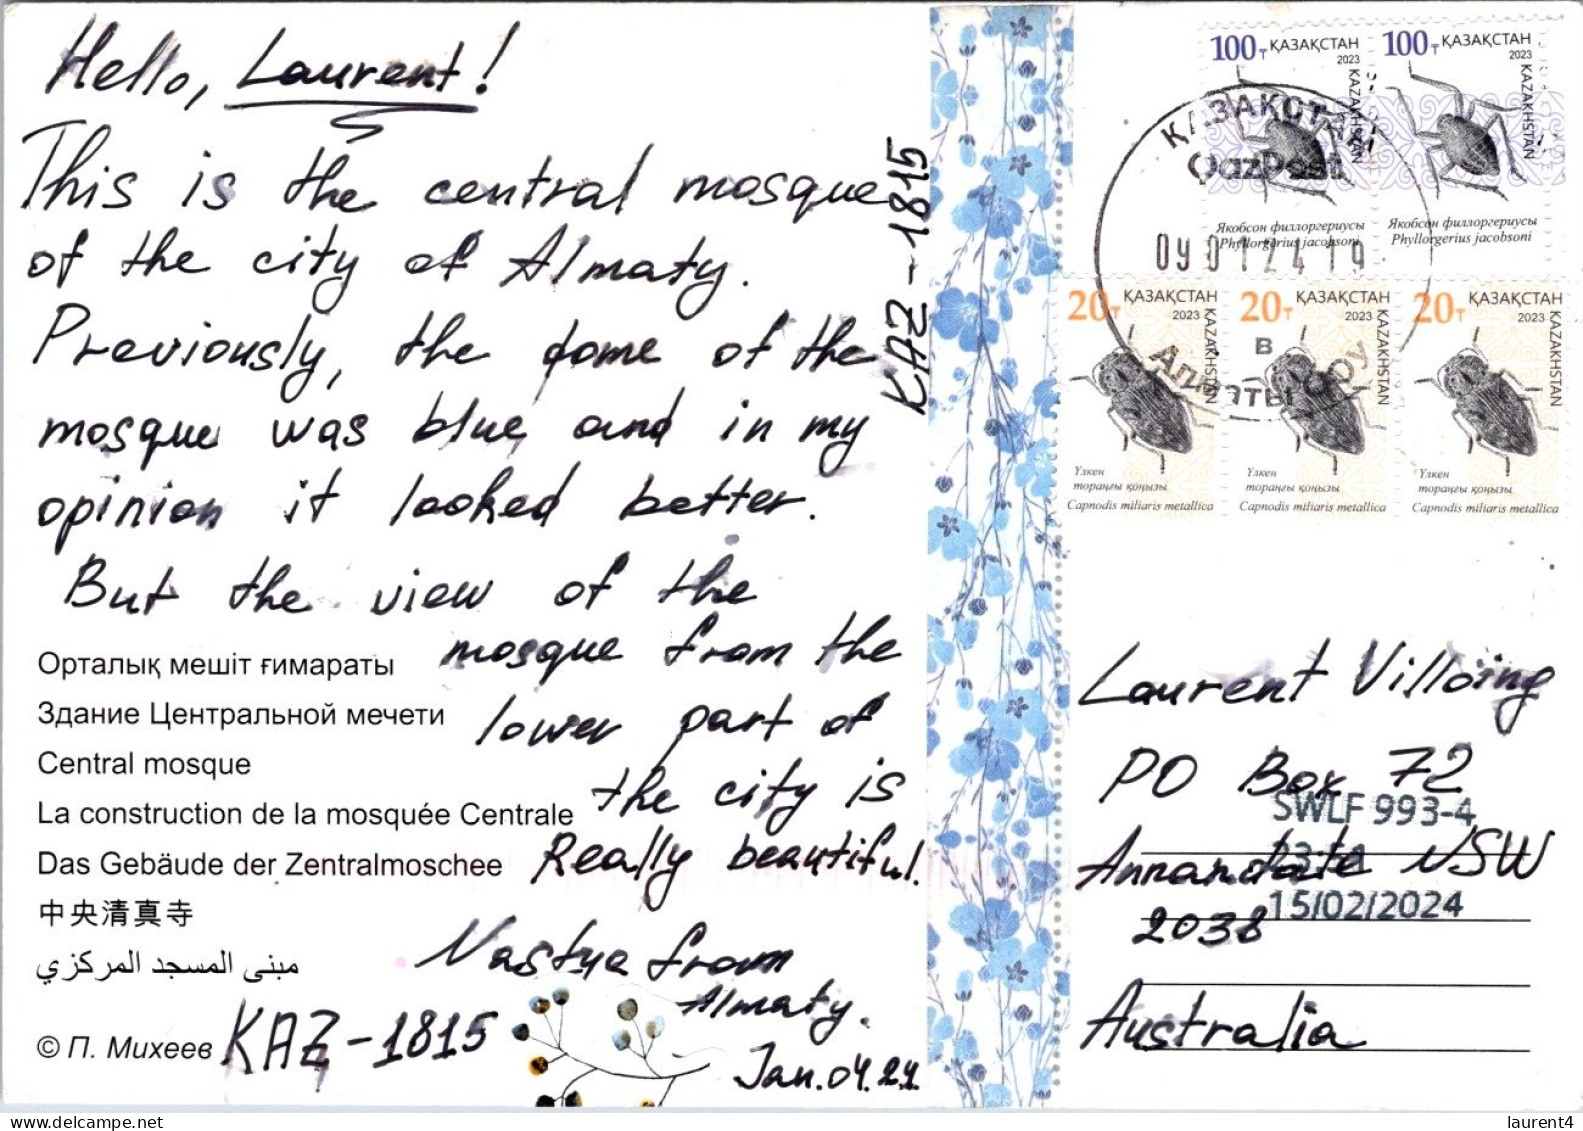 Hello, Laurent!
This is the central mosque
of the city of Almaty.
Previously, the dome of the
mosque was blue, and in my
opinion it looked better.
But the view of the
mosque from the
lower part of
the city is
Really beautiful.
Nastya from
Almaty.
Jan. 04. 24.
Орталық мешіт ғимараты
Здание Центральной мечети
Central mosque
La construction de la mosquée Centrale
Das Gebäude der Zentralmoschee
中央清真寺
مبنى المسجد المركزي
© П. Михеев
KAZ-1815
KAZ-1815
100т ҚАЗАҚСТАН
2023
KAZAKHSTAN
Якобсон филлоргериусы
Phyllorgerius jacobsoni
100т ҚАЗАҚСТАН
2023
KAZAKHSTAN
Якобсон филлоргериусы
Phyllorgerius jacobsoni
ҚАЗАҚСТАН
QazPost
09012419
В
Алматы
20т ҚАЗАҚСТАН
2023
KAZAKHSTAN
Үлкен
тораңғы қоңызы
Capnodis miliaris metallica
20т ҚАЗАҚСТАН
2023
KAZAKHSTAN
Үлкен
тораңғы қоңызы
Capnodis miliaris metallica
20т ҚАЗАҚСТАН
2023
KAZAKHSTAN
Үлкен
тораңғы қоңызы
Capnodis miliaris metallica
Laurent Villoing
PO Box 72
SWLF 993-4
Annandale NSW
15/02/2024
2038
Australia
laurent4